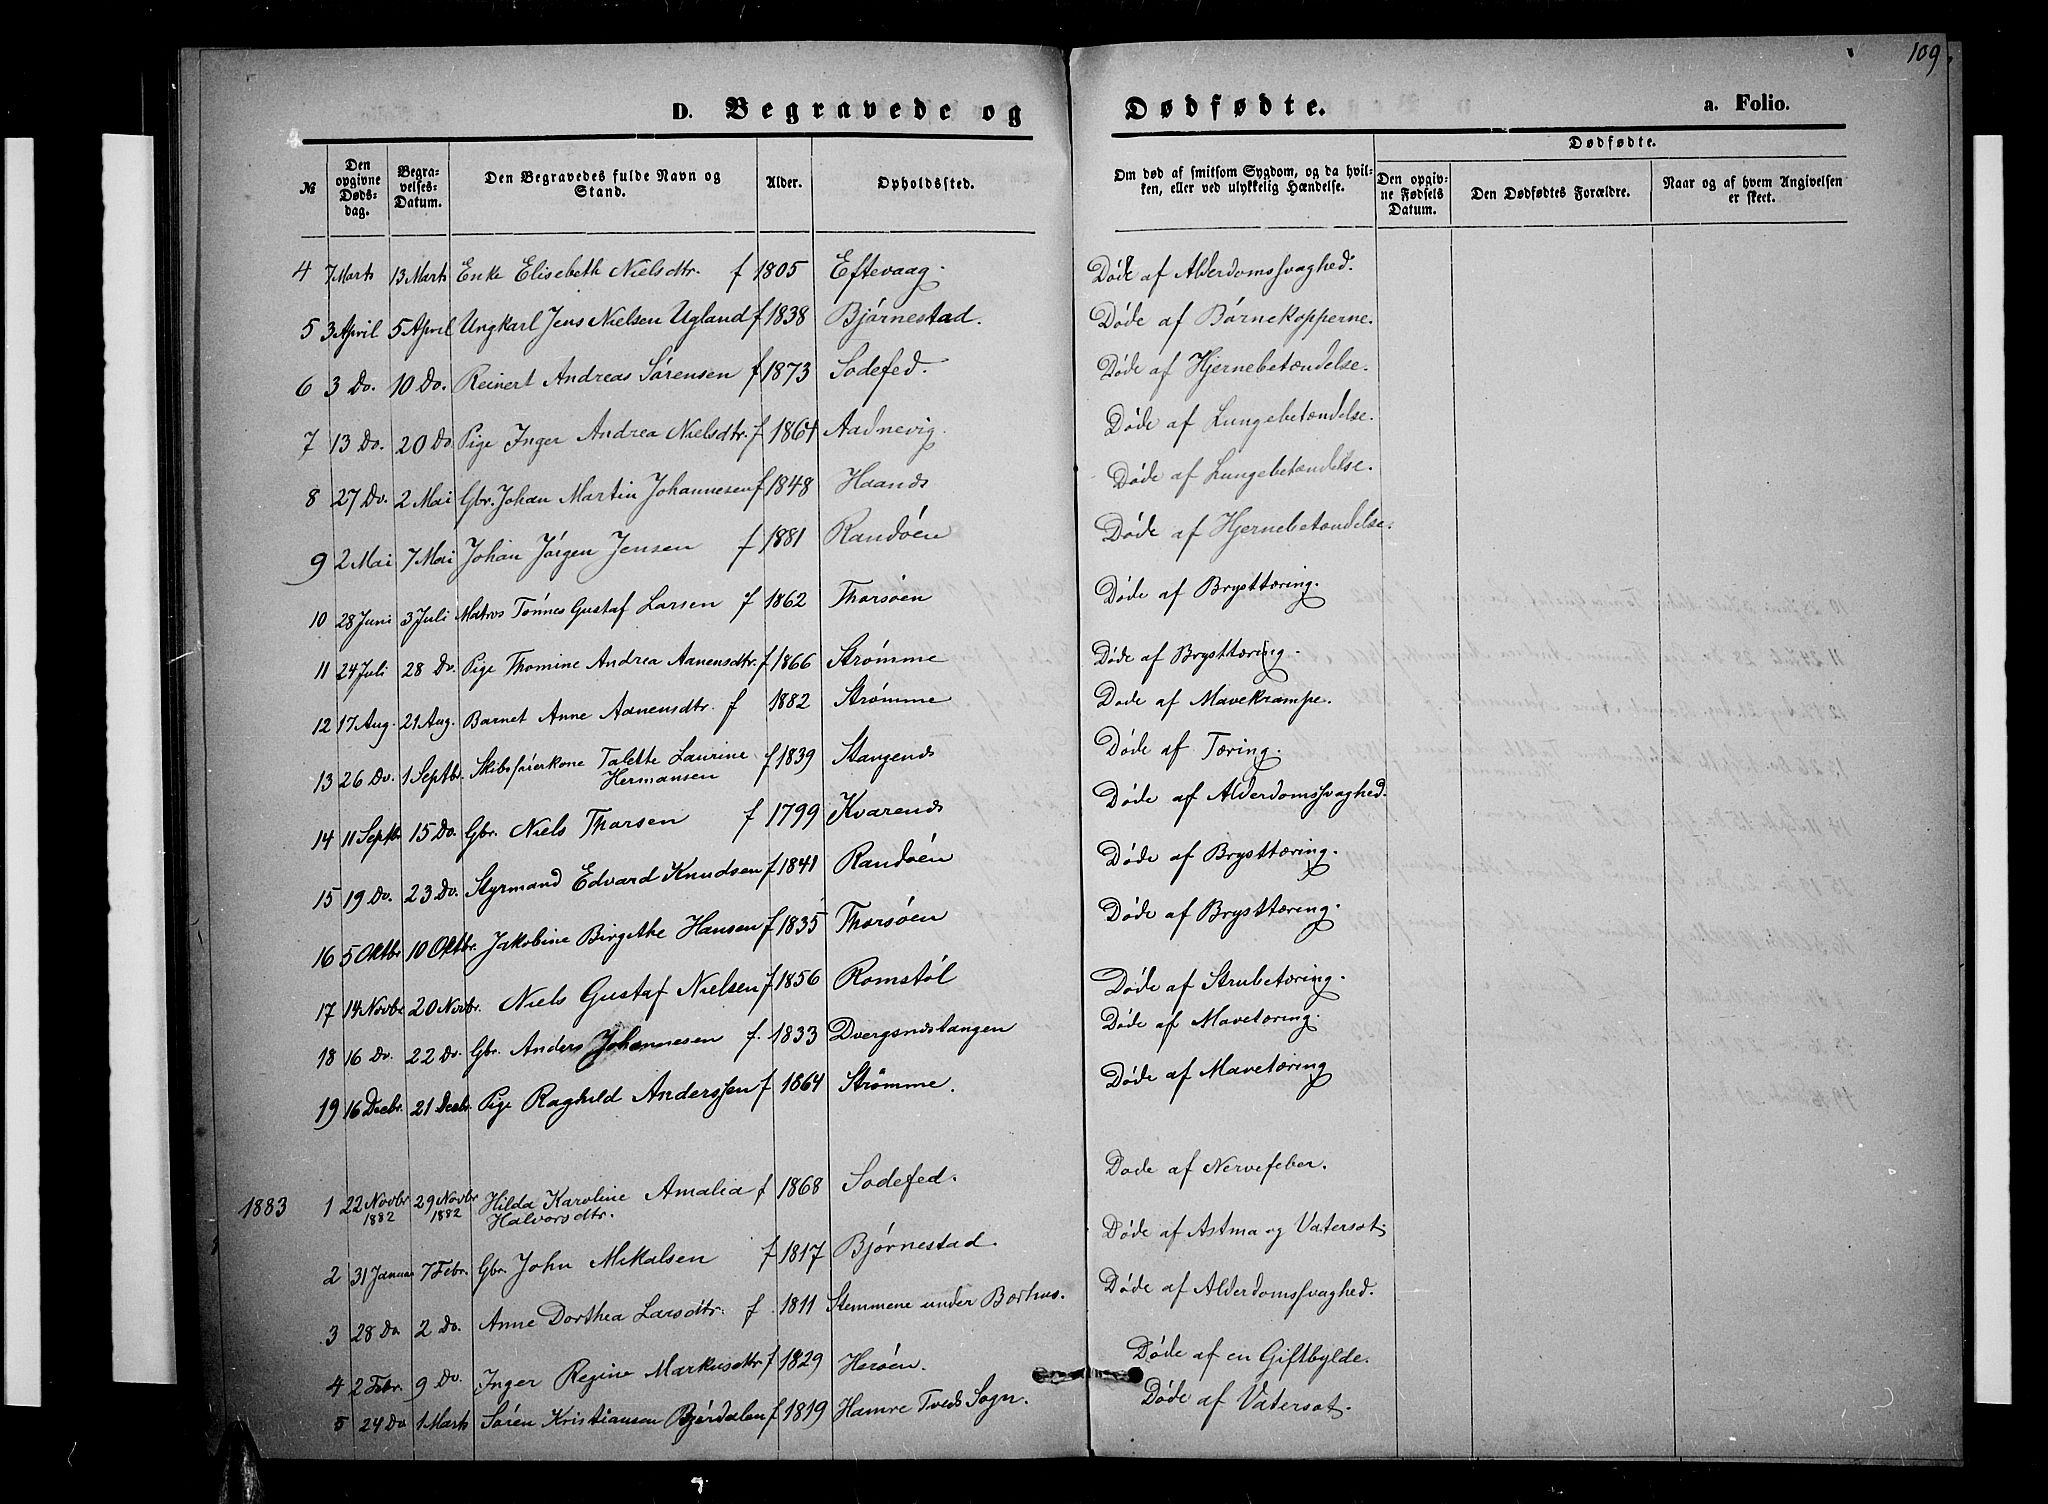 109.
D. Begravede og Dødfødte. a. Folio.
№ Den opgivne Dødsdag. Begravelses-Datum. Den Begravedes fulde Navn og Stand. Alder. Opholdssted. Om død af smitsom Sygdom, og da hvilken, eller ved ulykkelig Hændelse. Dødfødte. Den opgivne Fødsels Datum. Den Dødfødtes Forældre. Naar og af hvem Angivelsen er skeet.
4 7 Marts 13 Marts Enke Elisebeth Nielsdtr. f 1805 Eftevaag. Døde af Alderdomssvaghed.
5 3 April 5 April Ungkarl Jens Nielsen Ugland f 1838 Bjørnestad. Døde af Børnekopperne.
6 3 Do. 10 Do. Reinert Andreas Sørensen f 1873 Sodefed. Døde af Hjernebetændelse.
7 13 Do. 20 Do Pige Inger Andrea Nielsdtr. f 1864 Aadnevig. Døde af Lungebetændelse.
8 27 Do. 2 Mai Gbr. Johan Martin Johannesen f 1848 Haands Døde af Lungebetændelse.
9 2 Mai 7 Mai Johan Jørgen Jensen f 1881 Randøen Døde af Hjernebetændelse.
10 28 Juni 3 Juli Matros Tønnes Gustaf Larsen f 1862 Thorsøen Døde af Brysttæring.
11 24 Juli 28 Do. Pige Thomine Andrea Aanensdtr. f 1866 Strømme Døde af Brysttæring.
12 17 Aug. 21 Aug. Barnet Anne Aanensdtr. f 1882 Strømme Døde af Mavekrampe.
13 26 Do. 1 Septbr. Skibsførerkone Talette Laurine Hermansen f 1839 Stangends Døde af Tæring.
14 11 Septbr 15 Do. Gbr. Niels Thorsen f 1799 Kvarends Døde af Alderdomssvaghed.
15 19 Do. 23 Do. Styrmand Edvard Knudsen f 1841 Randøen Døde af Brysttæring.
16 5 Oktbr 10 Oktbr. Jakobine Birgithe Hansen f 1835 Thorsøen Døde af Brysttæring.
17 14 Novbr 20 Novbr. Niels Gustaf Nielsen f 1856 Romstøl Døde af Strubetæring.
18 16 Do. 22 Do. Gbr. Anders Johannesen f. 1833 Dvergsnestangen Døde af Mavetæring.
19 16 Decbr. 21 Decbr. Pige Raghild Anderssen f 1864 Strømme. Døde af Mavetæring
1883 1 22 Novbr 1882 29 Novbr 1882 Hilda Karoline Amalia Halvorsdtr. f 1868 Sodefed. Døde af Nervefeber.
2 31 Januar 7 Febr. Gbr. John Mikalsen f 1817 Bjørnestad. Døde af Astma og Vatersot.
3 28 Do 2 Do. Anne Dorthea Larsdtr. f. 1811 Stemmene under Borhus. Døde af Alderdomssvaghed.
4 2 Febr. 9 Do. Inger Regine Markusdtr f 1829 Herøen. Døde af en Giftbylde.
5 24 Do 1 Marts Søren Kristiansen Bjørdalen f 1819 Hamre Tveds Sogn. Døde af Vatersot.